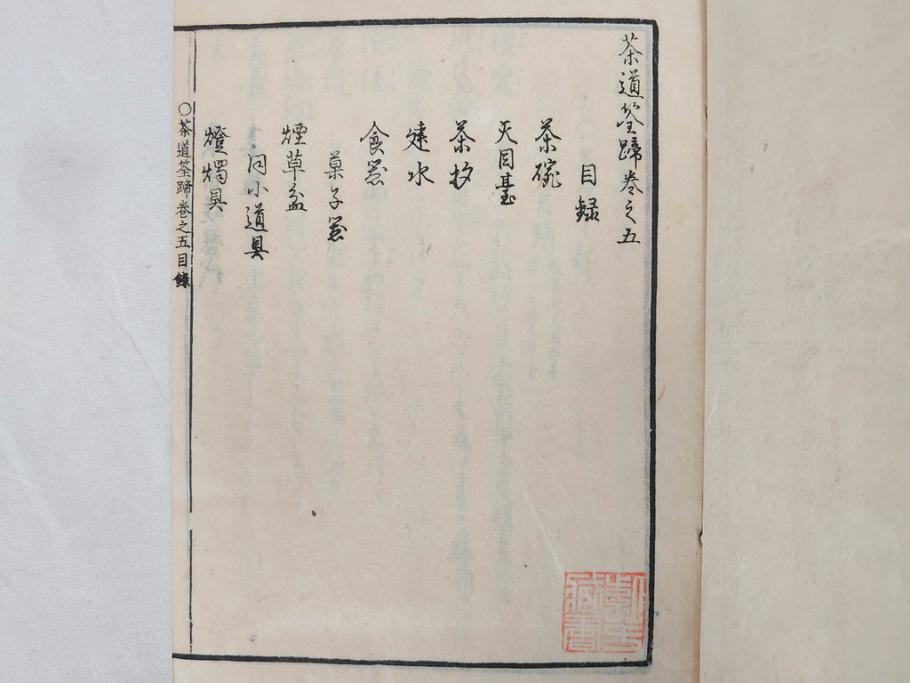 茶道筌蹄巻之五
目録
茶碗
天目臺
茶杓
建水
食器
菓子器
煙草盆
同小道具
燈燭具
○茶道筌蹄巻之五目録